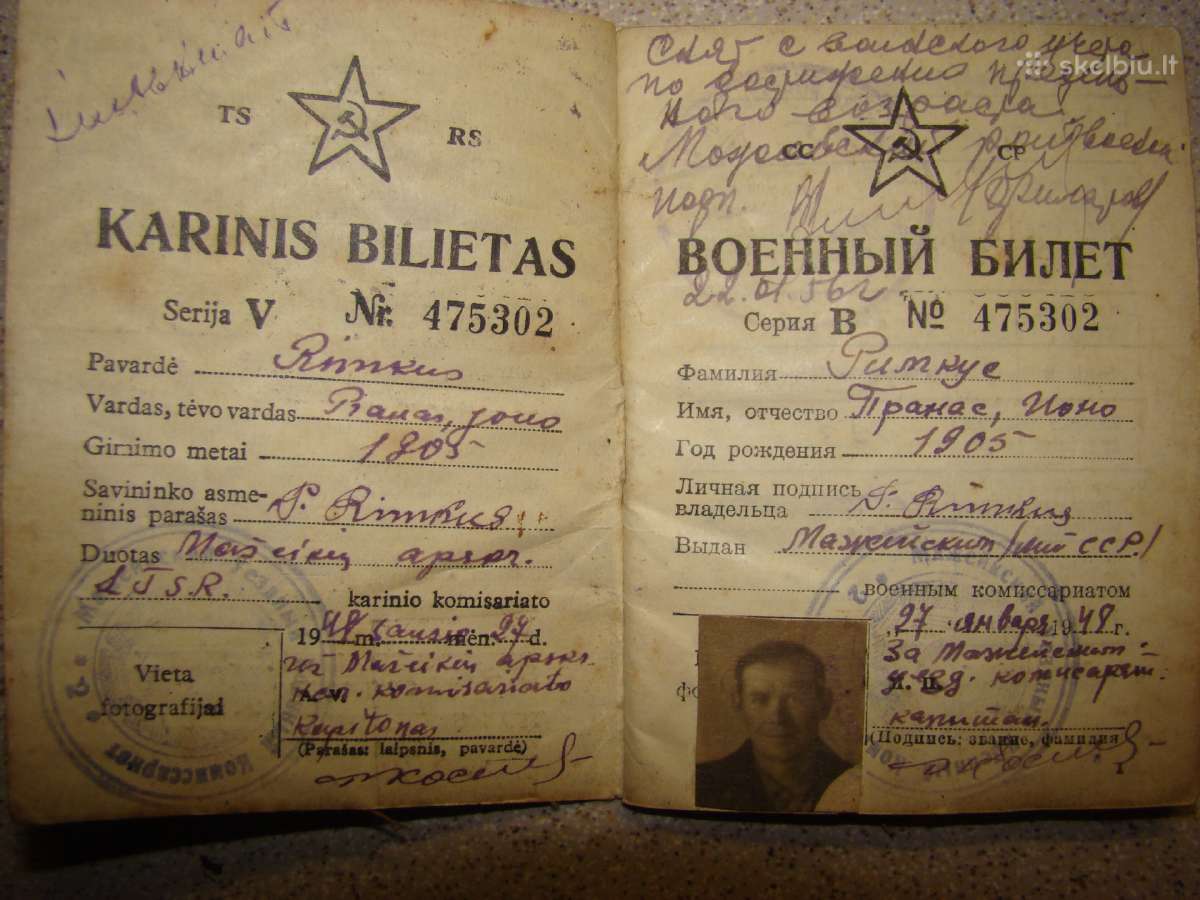 TS RS
KARINIS BILIETAS
Serija V Nr. 475302
Pavardė Rimkus
Vardas, tėvo vardas Pranas, Jono
Gimimo metai 1905
Savininko asme-
ninis parašas P. Rimkus
Duotas Mažeikių apskr.
LTSR. karinio komisariato
1948 m. sausio mėn. 27 d.
už Mažeikių apskr.
A. V. komisariato
Kapitonas
(Parašas: laipsnis, pavardė)
Vieta
fotografijai
Комиссариат
skelbiu.lt
Снят с воинского учета
по достижении предель-
ного возраста
райвоенком
подп.
СС СР
ВОЕННЫЙ БИЛЕТ
22.01.56 г
Серия В № 475302
Фамилия Римкус
Имя, отчество Пранас, Ионо
Год рождения 1905
Личная подпись
владельца P. Rimkus
Выдан Мажейским ССР/
военным комиссариатом
27 января 1948 г.
За Мажейским
уезд. комиссара
М. П.
капитан
(Подпись: звание, фамилия)
1